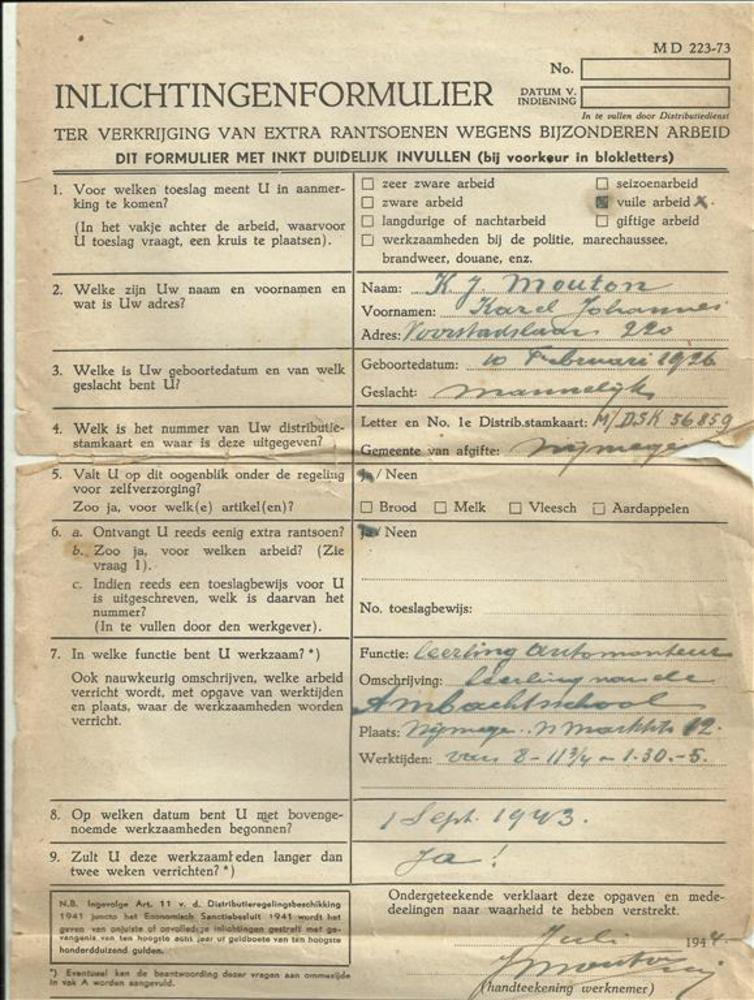 MD 223-73
No.
INLICHTINGENFORMULIER
DATUM V. INDIENING
In te vullen door Distributiedienst
TER VERKRIJGING VAN EXTRA RANTSOENEN WEGENS BIJZONDEREN ARBEID
DIT FORMULIER MET INKT DUIDELIJK INVULLEN (bij voorkeur in blokletters)
1. Voor welken toeslag meent U in aanmer-
king te komen?
(In het vakje achter de arbeid, waarvoor
U toeslag vraagt, een kruis te plaatsen).
zeer zware arbeid
seizoenarbeid
zware arbeid
vuile arbeid X.
langdurige of nachtarbeid
giftige arbeid
werkzaamheden bij de politie, marechaussee,
brandweer, douane, enz.
2. Welke zijn Uw naam en voornamen en
wat is Uw adres?
Naam: K. J. Mouton
Voornamen: Karel Johannes
Adres: Voorstadslaan 220
3. Welke is Uw geboortedatum en van welk
geslacht bent U?
Geboortedatum: 10 Februari 1926
Geslacht: mannelijk
4. Welk is het nummer van Uw distributie-
stamkaart en waar is deze uitgegeven?
Letter en No. 1e Distrib.stamkaart: M/DSK 56859
Gemeente van afgifte: Nijmegen
5. Valt U op dit oogenblik onder de regeling
voor zelfverzorging?
Zoo ja, voor welk(e) artikel(en)?
Ja / Neen
Brood Melk Vleesch Aardappelen
6. a. Ontvangt U reeds eenig extra rantsoen?
b. Zoo ja, voor welken arbeid? (Zie
vraag 1).
c. Indien reeds een toeslagbewijs voor U
is uitgeschreven, welk is daarvan het
nummer?
(In te vullen door den werkgever).
Ja / Neen
No. toeslagbewijs:
7. In welke functie bent U werkzaam? *)
Ook nauwkeurig omschrijven, welke arbeid
verricht wordt, met opgave van werktijden
en plaats, waar de werkzaamheden worden
verricht.
Functie: leerling Automonteur
Omschrijving: leerling van de
Ambachtschool
Plaats: Nijmegen. N Markt 12.
Werktijden: van 8 - 11 3/4 - 1.30.-5.
8. Op welken datum bent U met bovenge-
noemde werkzaamheden begonnen?
1 Sept. 1943.
9. Zult U deze werkzaamheden langer dan
twee weken verrichten? *)
Ja!
N.B. Ingevolge Art. 11 v. d. Distributieregelingsbeschikking
1941 juncto het Economisch Sanctiebesluit 1941 wordt het
geven van onjuiste of onvolledige inlichtingen gestraft met ge-
vangenis van ten hoogste acht jaar of geldboete van ten hoogste
honderdduizend gulden.
*) Eventueel kan de beantwoording dezer vragen aan ommezijde
in vak A worden aangevuld.
Ondergeteekende verklaart deze opgaven en mede-
deelingen naar waarheid te hebben verstrekt.
Juli 1944.
Mouton
(handteekening werknemer)